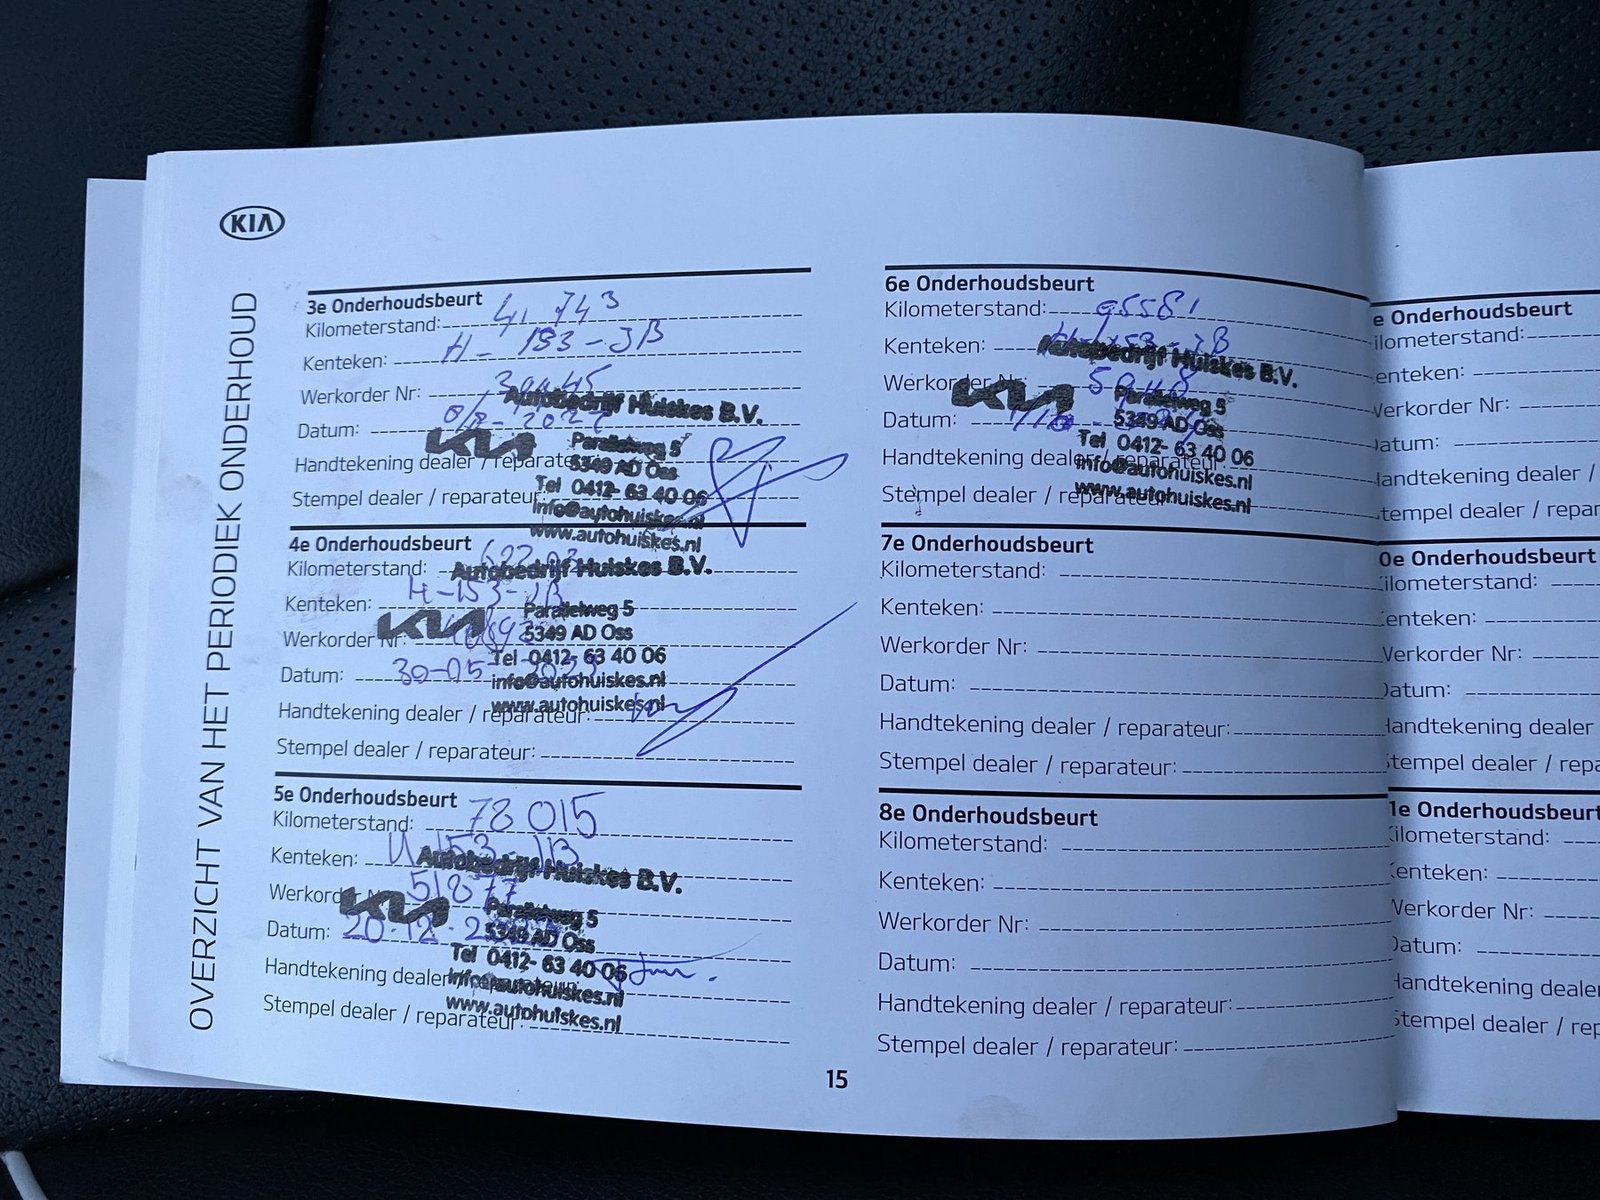 KIA
OVERZICHT VAN HET PERIODIEK ONDERHOUD
3e Onderhoudsbeurt
Kilometerstand: 41.743
Kenteken: H-153-JB
Werkorder Nr:
Datum:
Handtekening dealer / reparateur:
Stempel dealer / reparateur:
Autobedrijf Huiskes B.V.
KIA
Parallelweg 5
5349 AD Oss
Tel 0412- 63 40 06
info@autohuiskes.nl
www.autohuiskes.nl
4e Onderhoudsbeurt
Kilometerstand:
Kenteken: H-153-JB
Werkorder Nr:
Datum: 30-05
Handtekening dealer / reparateur:
Stempel dealer / reparateur:
Autobedrijf Huiskes B.V.
KIA
Parallelweg 5
5349 AD Oss
Tel 0412- 63 40 06
info@autohuiskes.nl
www.autohuiskes.nl
5e Onderhoudsbeurt
Kilometerstand: 78015
Kenteken: H-153-JB
Werkorder Nr: 51877
Datum: 20-12-
Handtekening dealer / reparateur:
Stempel dealer / reparateur:
Autobedrijf Huiskes B.V.
KIA
Parallelweg 5
5349 AD Oss
Tel 0412- 63 40 06
info@autohuiskes.nl
www.autohuiskes.nl
6e Onderhoudsbeurt
Kilometerstand: 95581
Kenteken: H-153-JB
Werkorder Nr:
Datum:
Handtekening dealer / reparateur:
Stempel dealer / reparateur:
Autobedrijf Huiskes B.V.
KIA
Parallelweg 5
5349 AD Oss
Tel 0412- 63 40 06
info@autohuiskes.nl
www.autohuiskes.nl
7e Onderhoudsbeurt
Kilometerstand:
Kenteken:
Werkorder Nr:
Datum:
Handtekening dealer / reparateur:
Stempel dealer / reparateur:
8e Onderhoudsbeurt
Kilometerstand:
Kenteken:
Werkorder Nr:
Datum:
Handtekening dealer / reparateur:
Stempel dealer / reparateur:
15
e Onderhoudsbeurt
ilometerstand:
enteken:
Werkorder Nr:
Datum:
Handtekening dealer /
tempel dealer / repar
0e Onderhoudsbeurt
Kilometerstand:
Kenteken:
Werkorder Nr:
Datum:
Handtekening dealer
Stempel dealer / repa
1e Onderhoudsbeurt
Kilometerstand:
Kenteken:
Werkorder Nr:
Datum:
Handtekening dealer
Stempel dealer / rep